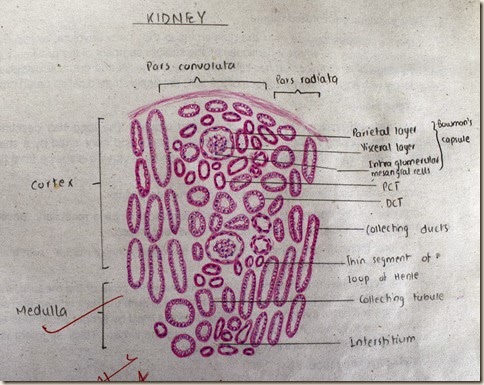 KIDNEY
Pars convoluta
Pars radiata
Parietal layer
Visceral layer
Bowman's
capsule
Intra glomerular
mesangial cells
PCT
DCT
Cortex
Collecting ducts
Thin segment of
loop of Henle
Medulla
Collecting tubule
Interstitium